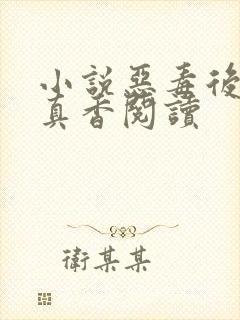 小說惡毒後
真香閱讀
衛某某